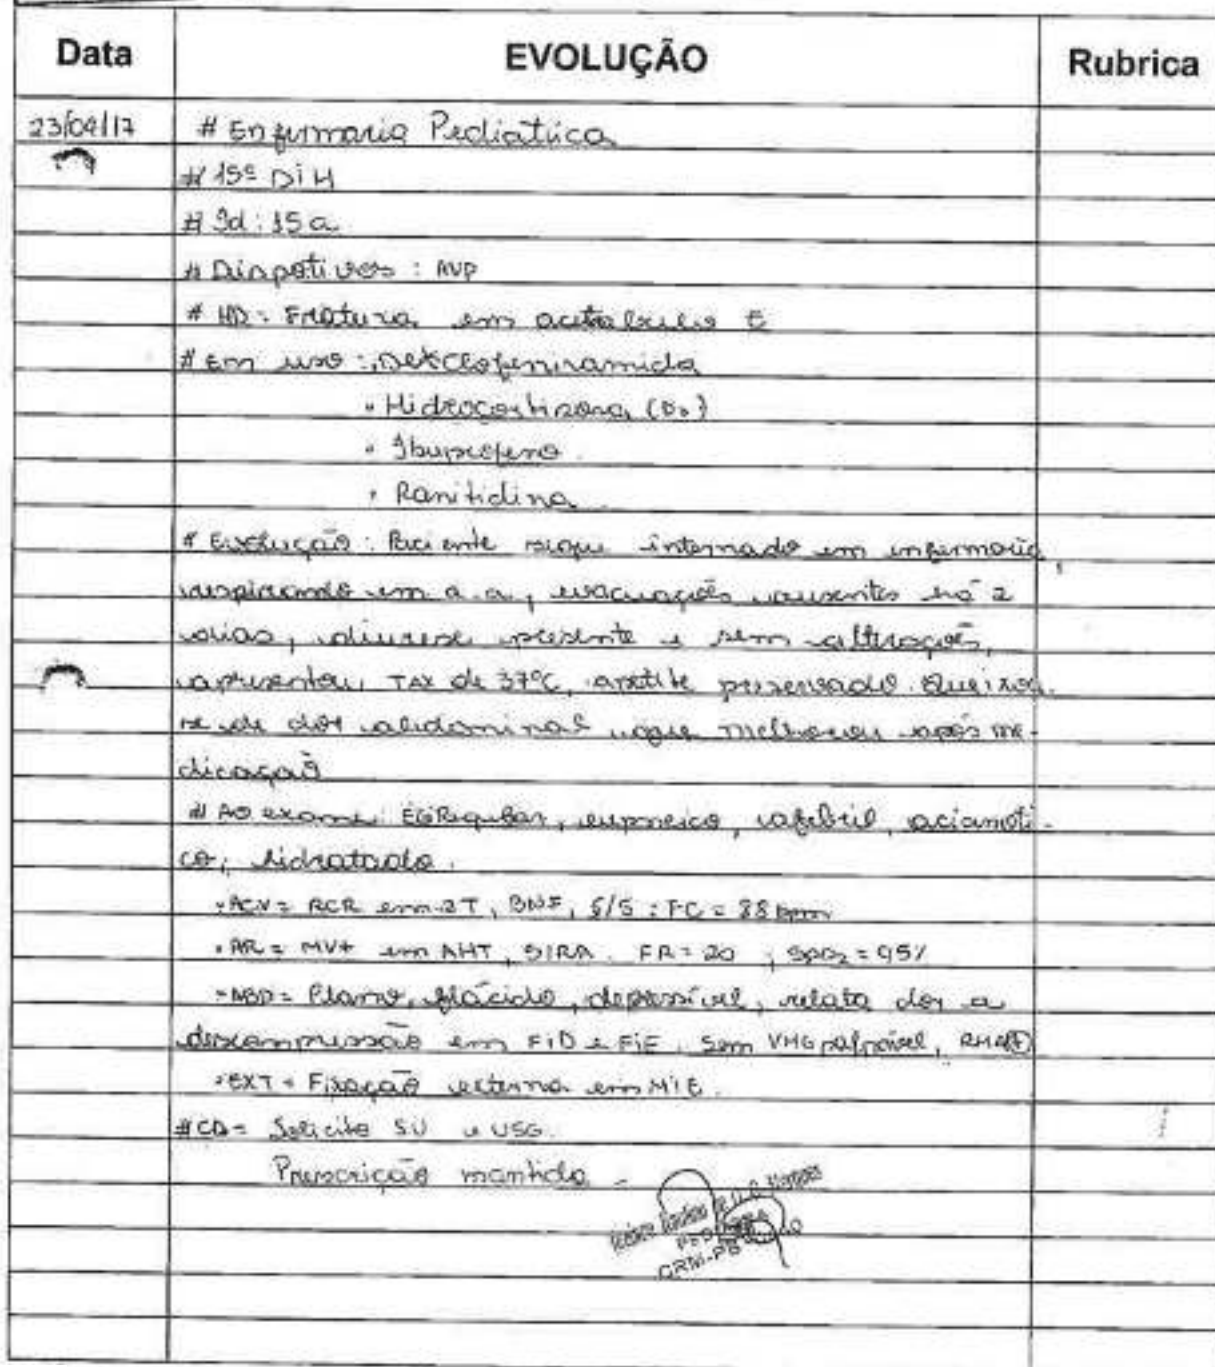 Data EVOLUÇÃO Rubrica
23/04/17 # Enfermaria Pediátrica
# 15º DiH
# Id: 15 a
# Dispotivos: AVP
# HD: Fratura em acetabulo E
# Em uso: Dexclofeniramida
• Hidrocortisona (D0)
• Ibuprofeno
• Ranitidina
# Evolução: Paciente segue internado em enfermaria,
respirando em a.a, evacuações ausentes há 2
dias, diurese presente e sem alterações,
apresentou TAX de 37ºC, apetite preservado. Queixou
se de dor abdominal que melhorou após me-
dicação
# Ao exame: EGRegular, eupneico, afebril, acianoti-
co, hidratado.
• ACV = RCR em 2T, BNF, S/S; FC = 88 bpm
• AR = MV+ em AHT, S/RA. FR = 20; SpO2 = 95%
• ABD = Plano, flácido, depressível, relata dor a
descompressão em FiD e FiE. Sem VMG palpável, RHA⊕
• EXT = Fixação externa em MIE.
#CD = Solicito SU e USG.
Prescrição mantida
CRM-PB